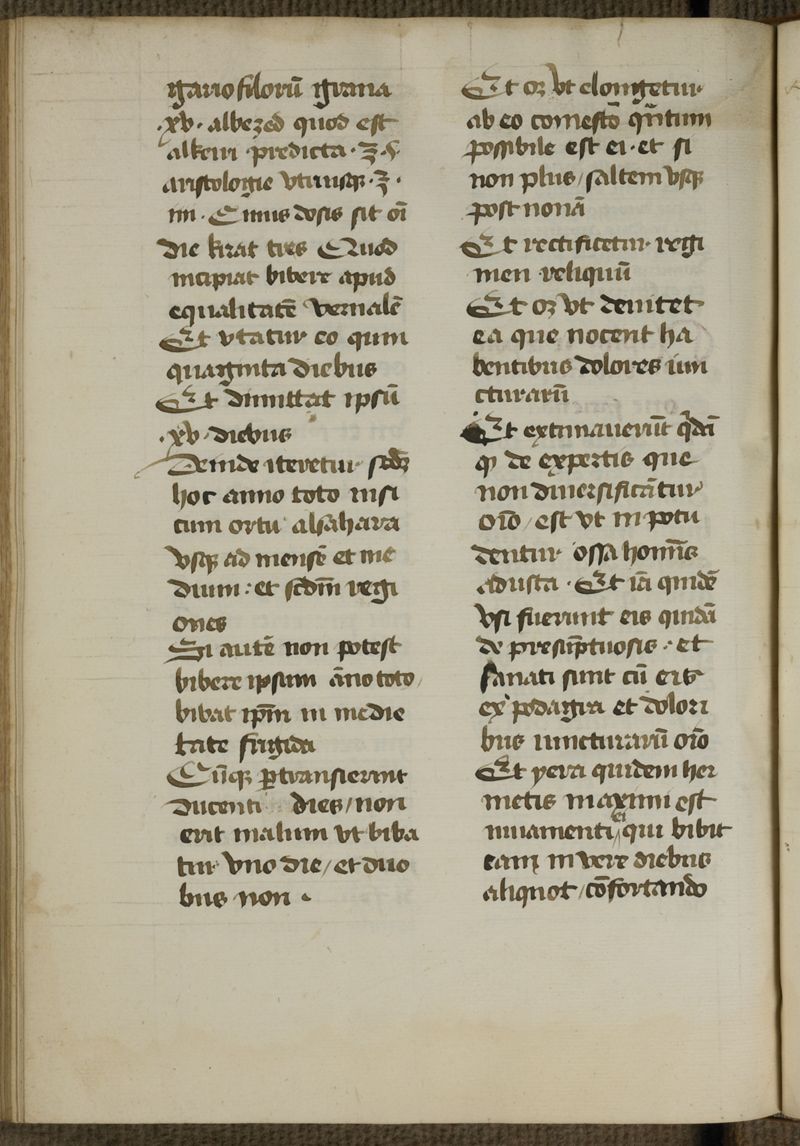 gariofilorũ grana
.xv. albezed quod est
alkeiri predicta . ℥ . ß
aristologie vtriusqꝫ . ℥ .
iiii . Cuius dosis sit oĩ
die kirat tres Quod
incipiat bibere apud
equalitatẽ vernalẽ
Et vtatur eo quin
quaginta diebus
Et dimittat ipsũ
.xv. diebus
Deinde iteretur sicqꝫ
hoc anno toto nisi
cum ortu alsahara
vsqꝫ ad mensẽ et me
dium : et scdm̃ regi
ones
Si autẽ non potest
bibere ipsum ãno toto /
bibat ipm̃ in medie
tate frigida
Cũqꝫ ꝑtransierint
Ducenti dies / non
erit malum vt biba
tur vno die / et duo
bus non .
Et oꝫ vt elongetur
ab eo comestõ qñtum
possibile est ei . et si
non plus / saltem vsqꝫ
post nonã
Et rectificetur regi
men reliquũ
Et oꝫ vt deuitet
ea que nocent ha
bentibus dolores iun
cturarũ
Et extimauerũt qdã
ꝙ de expertis que
non diuersificãtur
oĩo / est vt in potu
dentur ossa homĩs
adusta . Et iã quidẽ
vsi fuerunt eis quidã
de presũptuosis : et
sanati sunt cũ eis
ex podagra et dolori
bus iuncturarũ oĩo
Et yera quidem her
metis maximi est
iuuamenti / ei qui bibit
eam in vere diebus
aliquot / cõfortando